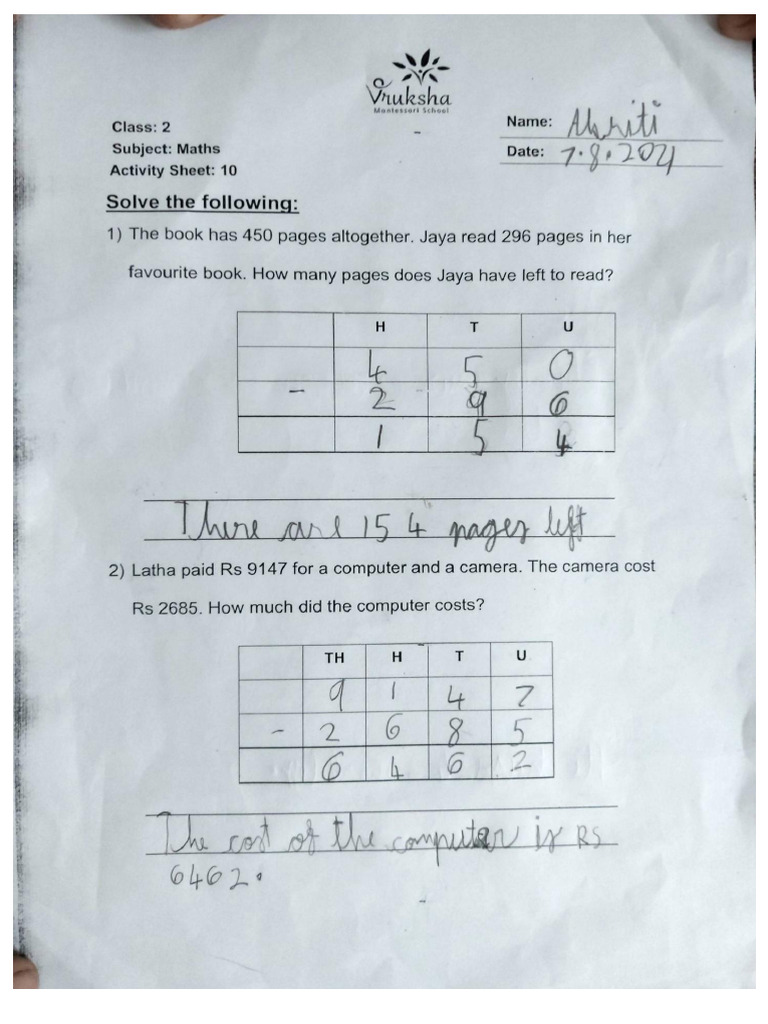 Vruksha
Montessori School
Class: 2
Name:
Subject: Maths
Date: 7.8.2021
Activity Sheet: 10
Solve the following:
1) The book has 450 pages altogether. Jaya read 296 pages in her
favourite book. How many pages does Jaya have left to read?
H T U
4 5 0
- 2 9 6
1 5 4
There are 154 pages left
2) Latha paid Rs 9147 for a computer and a camera. The camera cost
Rs 2685. How much did the computer costs?
TH H T U
9 1 4 7
- 2 6 8 5
6 4 6 2
The cost of the computer is RS
6462.